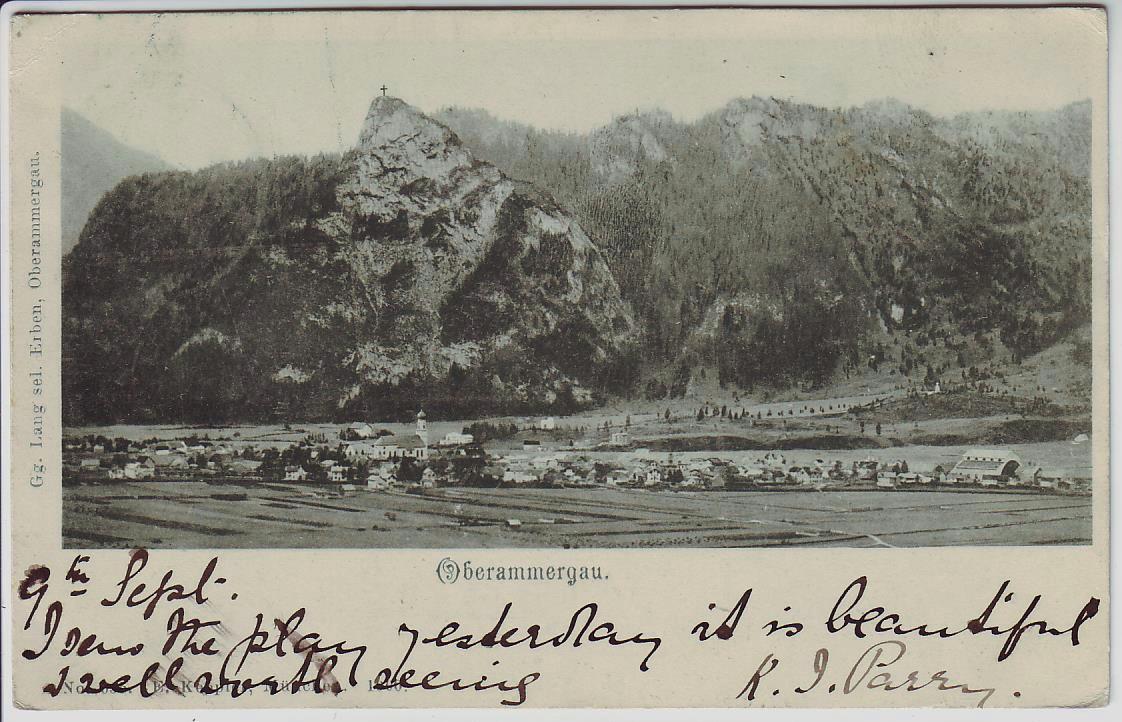 Gg. Lang sel. Erben, Oberammergau.
Oberammergau.
9th Sept.
I saw the play yesterday it is beautiful
& well worth seeing
K. J. Parry.